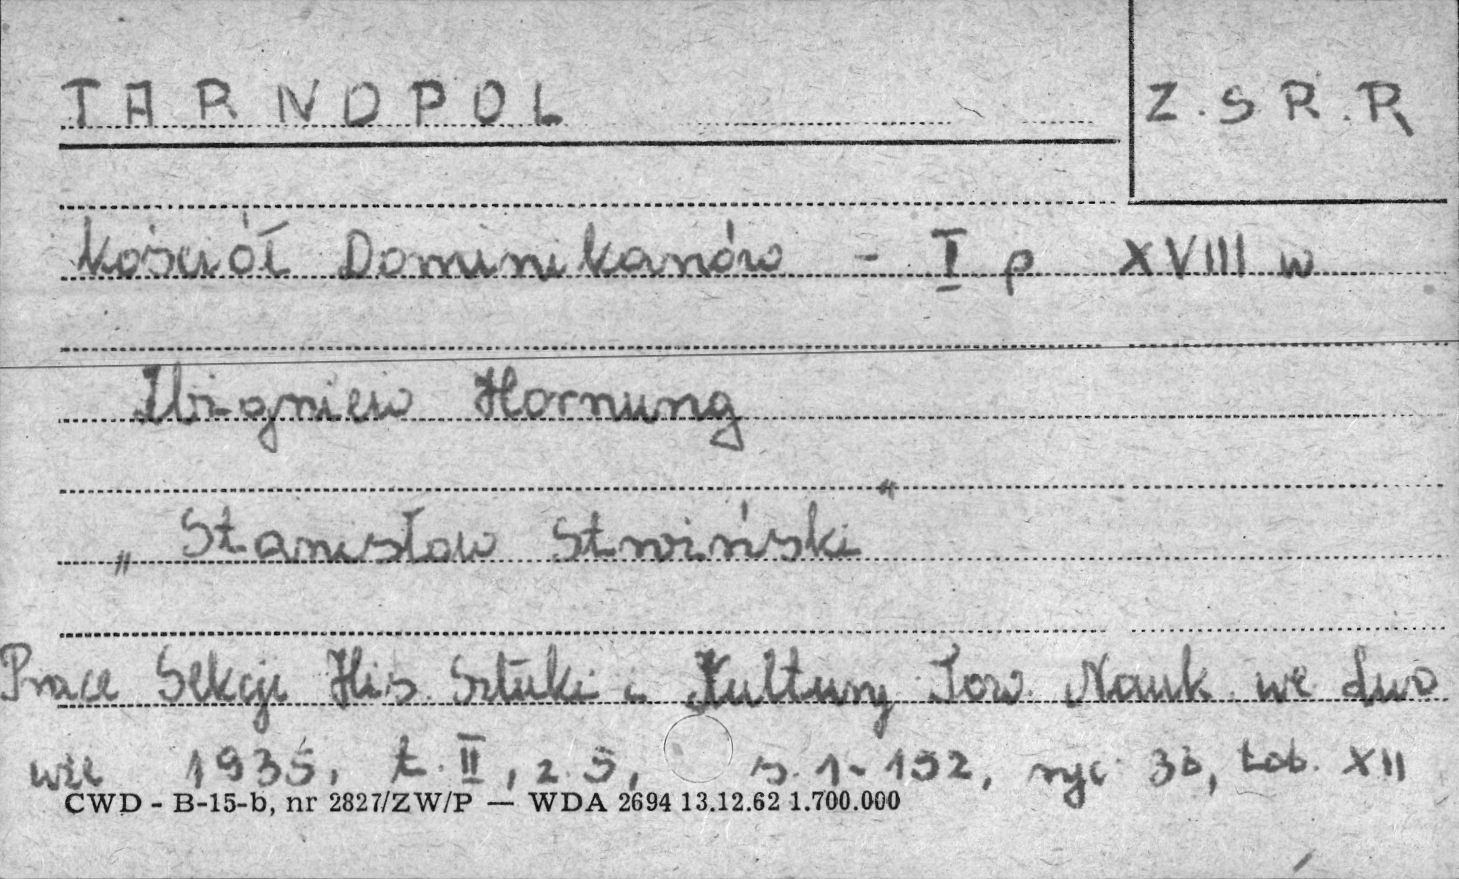 TARNOPOL
Z.S.R.R
Kościół Dominikanów - I p XVIII w
Zbigniew Hornung
„Stanisław Stroiński"
Prace Sekcji His. Sztuki i Kultury Tow. Nauk. we Lwo
wie 1935, t. II, z. 5, s. 1-152, ryc 36, tab. XII
CWD - B-15-b, nr 2827/ZW/P — WDA 2694 13.12.62 1.700.000